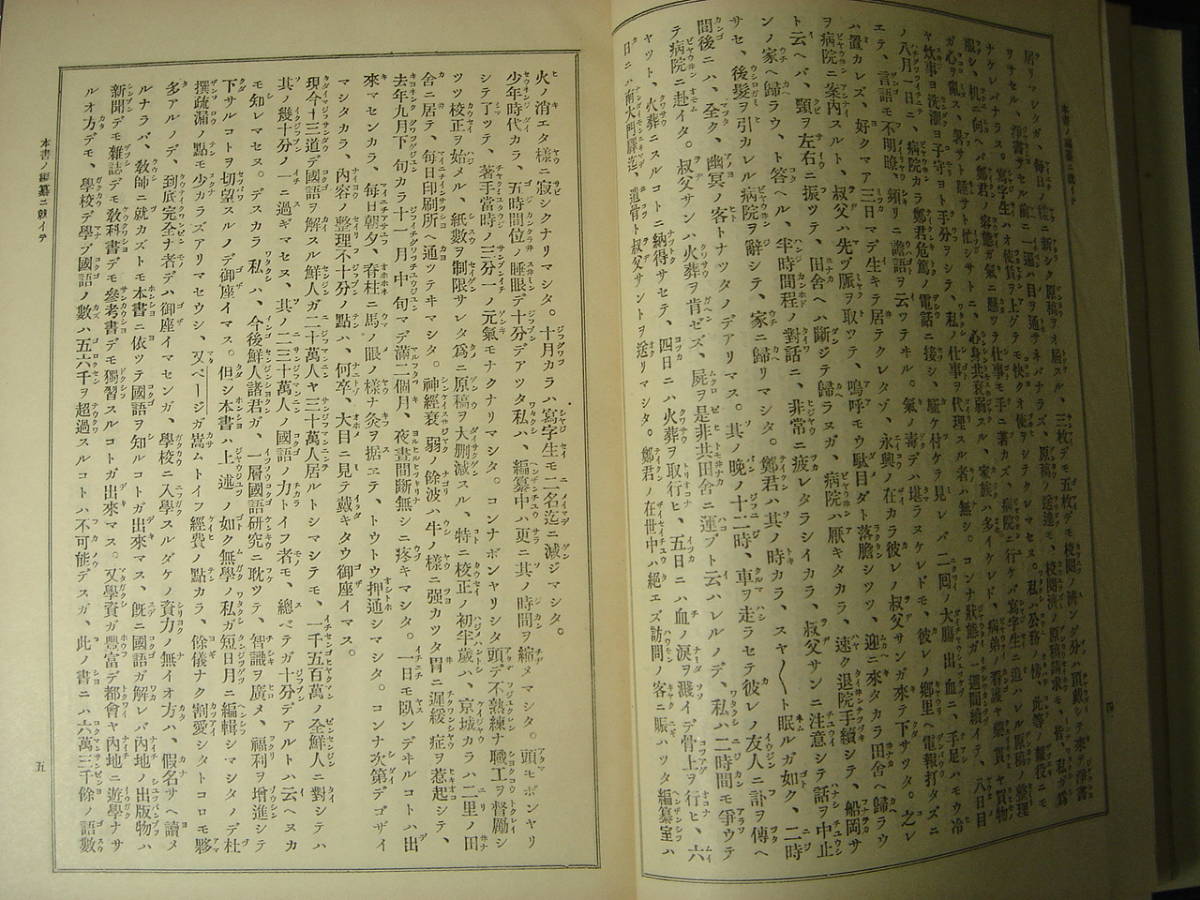 本書ノ編纂ニ就イテ
四
居リマシタガ、毎日ノ樣ニ新シク原稿ヲ屆スル、三枚デモ五枚デモ校閲ノ濟ンダ分ハ頂戴シテ來テ淨書
リサセル、淨書サセル前ニ一遍ハ目ヲ通サネバナラズ、原稿ノ送達モ、校閲濟ノ原稿請求モ、皆、私ガ爲
サナケレバナラズ。寫字生ハオ使賃ヲ上ゲテモ快クオ使ヲシテクレマセズ。私ハ公務ノ傍、此等ノ雜役ニモ
服シ、机ニ向ヘバ鄭君ノ容態ガ氣ニ懸ツテ仕事モ手ニ著カズ、病院ニ行ケバ寫字生ニ追ハレル原稿ノ整理
ガ心ヲ亂ス、暑サト騷サト忙シサトニ、心身共衰弱スル、家族ハ多イケレド、病弟ノ看護ヤ藥貰ヤ買物
ヤ炊事ヨ洗濯ヨ子守ヨト手分ヲシテ、私ノ仕事ヲ代理スル者ハ無シ。コンナ狀態ガ一週間續イテ、八日目
ノ八月一日ニ、病院カラ鄭君危篤ノ電話ニ接シ、驅ケ付ケテ見レバ二回ノ大腸出血デ、手足ハモウ冷
エテ、言語モ不明瞭、頻リニ譫語ヲ云ツテヰル。氣ノ毒デハ堪ラヌケレドモ、彼レノ鄕里ヘ電報打タズニ
ハ置カレズ、好クマア三日マデ生キテ居テクレタゾ、永興ノ在カラ彼レノ叔父サンガ來テ下サツタ。之レ
ヲ病院ニ案內スルト、叔父ハ先ヅ脈ヲ取ツテ、嗚呼モウ駄目ダト落膽シツツ、迎ニ來タカラ田舍ヘ歸ラウ
ト云ヘバ、頸ヲ左右ニ振ツテ、田舍ヘハ斷ジテ歸ラヌガ、病院ハ厭キタカラ、速ク退院手續シテ、船岡サ
ンノ家ヘ歸ラウ、ト答ヘル、半時間程ノ對話ニ、非常ニ疲レタラシイカラ、叔父サンニ注意シテ話ヲ中止
サセ、後髮ヲ引カレル心地シテ、病院ヲ辭シテ、家ニ歸リマシタ。鄭君ハ其ノ時カラ、スヤ〱ト眠ルガ如ク、二時
間後ニハ、全ク、幽冥ノ客トナツタノデアリマス。其ノ晩ノ十二時、車ヲ走ラセテ彼レノ友人ニ訃ヲ傳ヘ
テ病院ニ赴イタ。叔父サンハ火葬ヲ肯ゼズ、屍ヲ是非共田舍ニ運ブト云ハレルノデ、私ハ二時間モ爭ウテ
ヤット、火葬ニスルコトニ納得サセテ、四日ニ火葬ヲ取行ヒ、五日ニハ血ノ淚ヲ濺イデ骨上ヲ行ヒ、六
日ニハ南大門驛迄、遺骨ト叔父サントヲ送リマシタ。鄭君ノ在世中ハ絕エズ訪問ノ客ニ賑ハツタ編纂室ハ
火ノ消エタ樣ニ寂シクナリマシタ。十月カラハ寫字生モ二名迄ニ減ジマシタ。
少年時代カラ、五時間位ノ睡眠デ十分デアツタ私ハ、編纂中ハ更ニ其ノ時間ヲ縮メマシタ。頭モボンヤリ
シテ了ツテ、著手當時ノ三分一ノ元氣モナクナリマシタ。コンナボンヤリシタ頭デ不熟練ナ職工ヲ督勵シ
ツツ校正ヲ始メル、紙數ヲ制限サレタ爲ニ原稿ノ大削減スル、特ニ校正ノ初半歲ハ、京城カラハ二里ノ田
舍ニ居テ、每日印刷所ヘ通ツテヰマシタ。神經衰弱ノ餘波ハ牛ノ樣ニ强カツタ胃ニ遲緩症ヲ惹起シテ、
去年九月下旬カラ十一月中旬マデ滿二個月、夜晝間斷無シニ疼キマシタ。一日モ臥ンデヰルコトハ出
來マセンカラ、每日朝夕、脊柱ニ馬ノ眼ノ樣ナ灸ヲ据エテ、トウトウ押通シマシタ。コンナ次第デゴザイ
マシタカラ、內容ノ整理不十分ノ點ハ、何卒、大目ニ見テ戴キタウ御座イマス。
現今十三道デ國語ヲ解スル鮮人ガ二十萬人ヤ三十萬人居ルトシマシテモ、一千五百萬ノ全鮮人ニ對シテハ
其ノ幾十分ノ一ニ過ギマセヌ、其ノ二三十萬人ノ國語ノ力トイフ者モ、總ベテガ十分デアルトハ云ヘヌカ
モ知レマセヌ。デスカラ私ハ、今後鮮人諸君ガ、一層國語研究ニ耽ツテ、智識ヲ廣メ、福利ヲ增進シテ
下サルコトヲ切望スルノデ御座イマス。但シ本書ハ上述ノ如ク無學ノ私ガ短日月ニ編輯シマシタノデ杜
撰疏漏ノ點モ少カラズアリマセウシ、又ページガ嵩ムトイフ經費ノ點カラ、餘儀ナク割愛シタトコロモ夥
多アルノデ、到底完全ナ者デハ御座イマセンガ、學校ニ入學スルダケノ資力ノ無イオ方ハ、假名サヘ讀メ
ルナラバ、敎師ニ就カズトモ本書ニ依ツテ國語ヲ知ルコトガ出來マス、旣ニ國語ガ解レバ內地ノ出版物ハ
新聞デモ雜誌デモ敎科書デモ參考書デモ獨習スルコトガ出來マス。又學資ガ豐富デ都會ヤ內地ニ遊學ナサ
ルオ方デモ、學校デ學ブ國語ノ數ハ五六千ヲ超過スルコトハ不可能デスガ、此ノ書ニハ六萬三千餘ノ語數
本書ノ編纂ニ就イテ
五